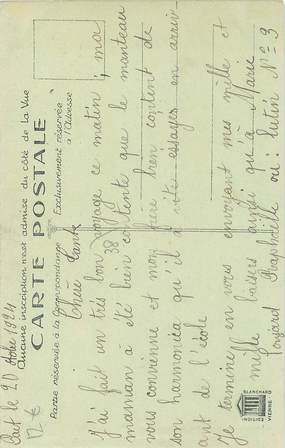 Aucune inscription n'est admise du côté de la Vue
CARTE POSTALE
Partie réservée à la Correspondance
Exclusivement réservée à l'adresse
le 20 1924
Chère Tante
J'ai fait un très bon voyage ce matin ; ma
maman a été bien contente que le manteau
vous convienne et mon frère bien content de
son harmonica qu'il a vite essayer en arriv
ant de l'école
Je termine en vous envoyant mes mille et
mille baisers ainsi qu'à Marie
Raphaëlle ou : lutin N° 3
38
BLANCHARD
VIENNE